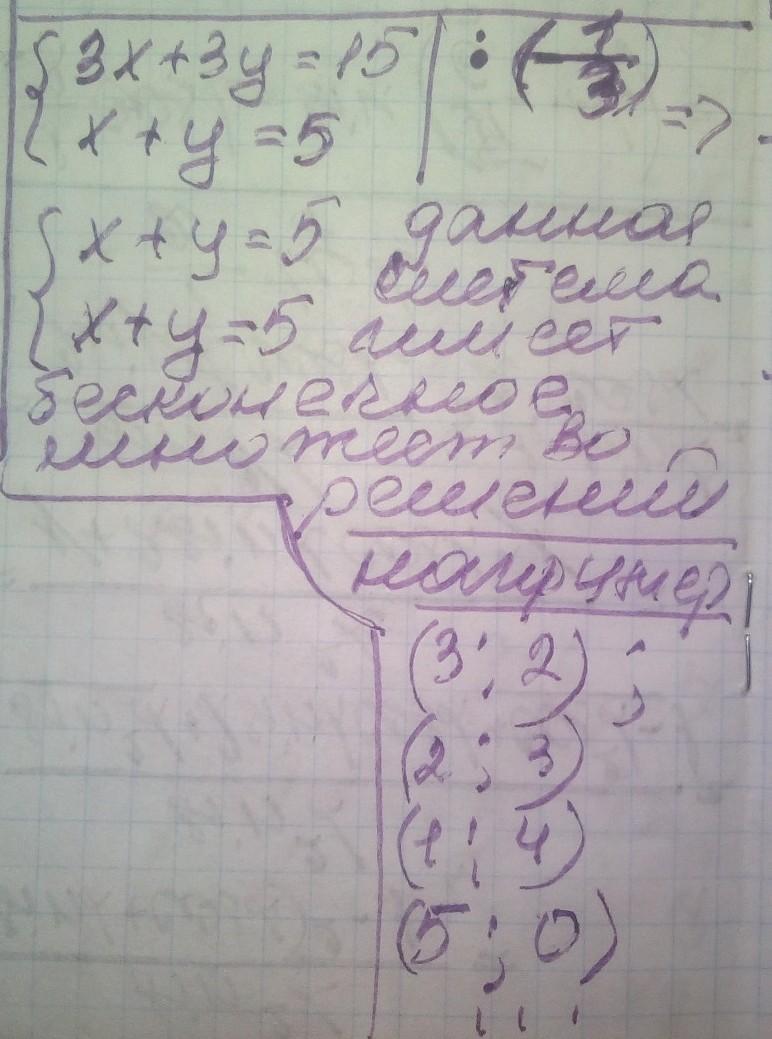 {3x+3y=15 | : (-1/3)
{x+y=5 =>
{x+y=5 данная
система
{x+y=5 имеет
бесконечное
множество
решений
например
(3; 2);
(2; 3)
(1; 4)
(5; 0)
...